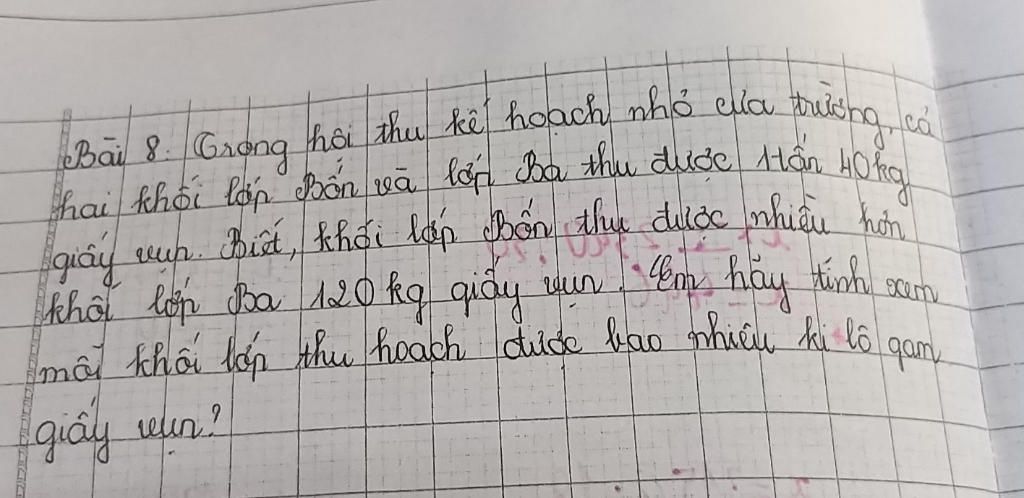 Bài 8. Trong hội thu kế hoạch nhỏ của trường, cả
hai khối lớp Bốn và lớp Ba thu được 1 tấn 40kg
giấy vụn. Biết, khối lớp Bốn thu được nhiều hơn
khối lớp Ba 120 kg giấy vụn. Em hãy tính xem
mỗi khối lớp thu hoạch được bao nhiêu ki lô gam
giấy vụn?